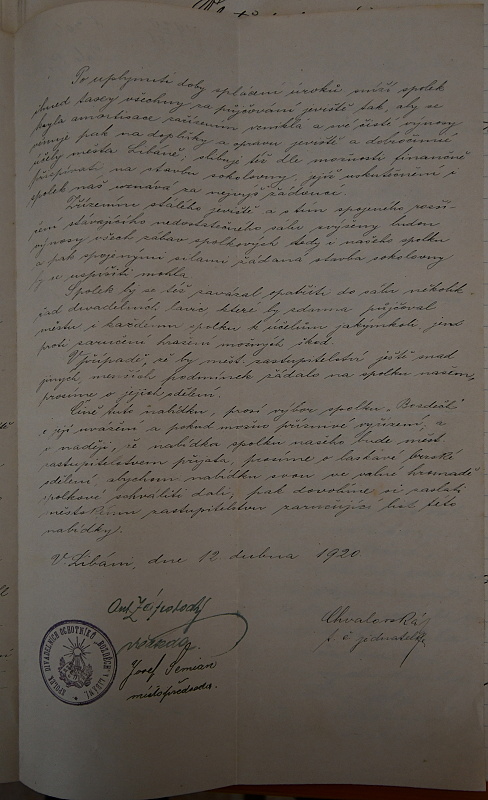 Po uplynutí doby splácení úroků může spolek
ihned taxy všechny za půjčování jeviště tak, aby se
kryla amortisace zařízením vzniklá a své čisté výnosy
věnuje pak na doplňky a opravu jeviště a dobročinné
účely města Libáně; slibuje též dle možnosti finančně
přispívati na stavbu sokolovny, jejíž uskutečnění i
spolek náš uznává za nejvýš žádoucí.
Zřízením stálého jeviště a s tím spojeného rozší-
ření stávajícího nedostatečného sálu zvýšeny budou
výnosy všech zábav spolkových tedy i našeho spolku
a pak spojenými silami žádaná stavba sokolovny
se uspíšiti mohla.
Spolek by se též zavázal opatřiti do sálu několik
řad divadelních lavic které by zdarma půjčoval
městu i každému spolku k účelům jakýmkoli, jen
proti zaručení hrazení možných škod.
V případě, že by měst. zastupitelství ještě nad
jiných, menších podmínek žádalo na spolku našem,
prosíme o jejich sdělení.
Číně tuto nabídku, prosí výbor spolku „Bozděch“
o její uvážení a pokud možno příznivé vyřízení, a
v naději, že nabídka spolku našeho bude měst.
zastupitelstvem přijata, prosíme o laskavé brzské
sdělení, abychom nabídku svou ve valné hromadě
spolkové schváliti dali, pak dovolíme si zaslati
městskému zastupitelstvu zaručující list této
nabídky.
V Libáni, dne 12. dubna 1920.
Ant.
předseda.
Josef Semian
místopředseda.
Chvalovský
t. č. jednatel.
SPOLEK DIVADELNÍCH OCHOTNÍKŮ „BOZDĚCH“ V LIBÁNI